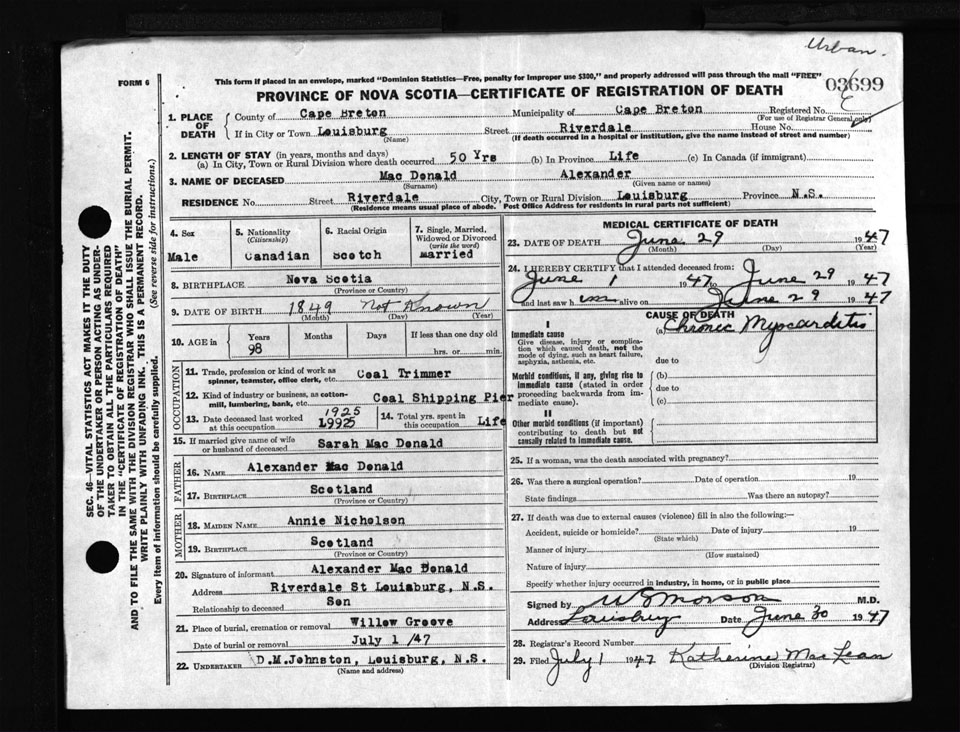 Urban.
FORM 6
This form if placed in an envelope, marked "Dominion Statistics—Free, penalty for improper use $300," and properly addressed will pass through the mail "FREE"
03699
PROVINCE OF NOVA SCOTIA—CERTIFICATE OF REGISTRATION OF DEATH
1. PLACE OF DEATH
County of Cape Breton Municipality of Cape Breton Registered No.
(For use of Registrar General only)
If in City or Town Louisburg Street Riverdale House No.
(Name) (If death occurred in a hospital or institution, give the name instead of street and number)
2. LENGTH OF STAY (in years, months and days)
(a) In City, Town or Rural Division where death occurred 50 Yrs (b) In Province Life (c) In Canada (if immigrant)
3. NAME OF DECEASED Mac Donald Alexander
(Surname) (Given name or names)
RESIDENCE No. Street Riverdale City, Town or Rural Division Louisburg Province N.S.
(Residence means usual place of abode. Post Office Address for residents in rural parts not sufficient)
4. Sex
Male
5. Nationality
(Citizenship)
Canadian
6. Racial Origin
Scotch
7. Single, Married, Widowed or Divorced
(write the word)
Married
8. BIRTHPLACE Nova Scotia
(Province or Country)
9. DATE OF BIRTH 1849 Not Known
(Month) (Day) (Year)
10. AGE in
Years Months Days If less than one day old
98 hrs. or min.
OCCUPATION
11. Trade, profession or kind of work as spinner, teamster, office clerk, etc. Coal Trimmer
12. Kind of industry or business, as cotton-mill, lumbering, bank, etc. Coal Shipping Pier
13. Date deceased last worked at this occupation 1925 19925
14. Total yrs. spent in this occupation Life
15. If married give name of wife or husband of deceased Sarah Mac Donald
FATHER
16. NAME Alexander Mac Donald
17. BIRTHPLACE Scotland
(Province or Country)
MOTHER
18. MAIDEN NAME Annie Nicholson
19. BIRTHPLACE Scotland
(Province or Country)
20. Signature of informant Alexander Mac Donald
Address Riverdale St Louisburg, N.S.
Relationship to deceased Son
21. Place of burial, cremation or removal Willow Groove
Date of burial or removal July 1 /47
22. UNDERTAKER D.M.Johnston, Louisburg, N.S.
(Name and address)
MEDICAL CERTIFICATE OF DEATH
23. DATE OF DEATH June 29 1947
(Month) (Day) (Year)
24. I HEREBY CERTIFY that I attended deceased from:
June 1 1947 to June 29 1947
and last saw him alive on June 29 1947
CAUSE OF DEATH
I
Immediate cause
Give disease, injury or complication which caused death, not the mode of dying, such as heart failure, asphyxia, asthenia, etc.
(a) Chronic Myocarditis
due to
Morbid conditions, if any, giving rise to immediate cause (stated in order proceeding backwards from immediate cause).
(b)
due to
(c)
II
Other morbid conditions (if important) contributing to death but not causally related to immediate cause.
25. If a woman, was the death associated with pregnancy?
26. Was there a surgical operation? Date of operation 19
State findings Was there an autopsy?
27. If death was due to external causes (violence) fill in also the following:—
Accident, suicide or homicide? Date of injury 19
(State which)
Manner of injury
(How sustained)
Nature of injury
Specify whether injury occurred in industry, in home, or in public place
Signed by W S Morson M.D.
Address Louisburg Date June 30 1947
28. Registrar's Record Number
29. Filed July 1 1947 Katherine MacLean
(Division Registrar)
SEC. 46—VITAL STATISTICS ACT MAKES IT THE DUTY
OF THE UNDERTAKER OR PERSON ACTING AS UNDER-
TAKER TO OBTAIN ALL THE PARTICULARS REQUIRED
IN THE "CERTIFICATE OF REGISTRATION OF DEATH"
AND TO FILE THE SAME WITH THE DIVISION REGISTRAR WHO SHALL ISSUE THE BURIAL PERMIT.
WRITE PLAINLY WITH UNFADING INK. THIS IS A PERMANENT RECORD.
Every item of information should be carefully supplied. (See reverse side for instructions.)